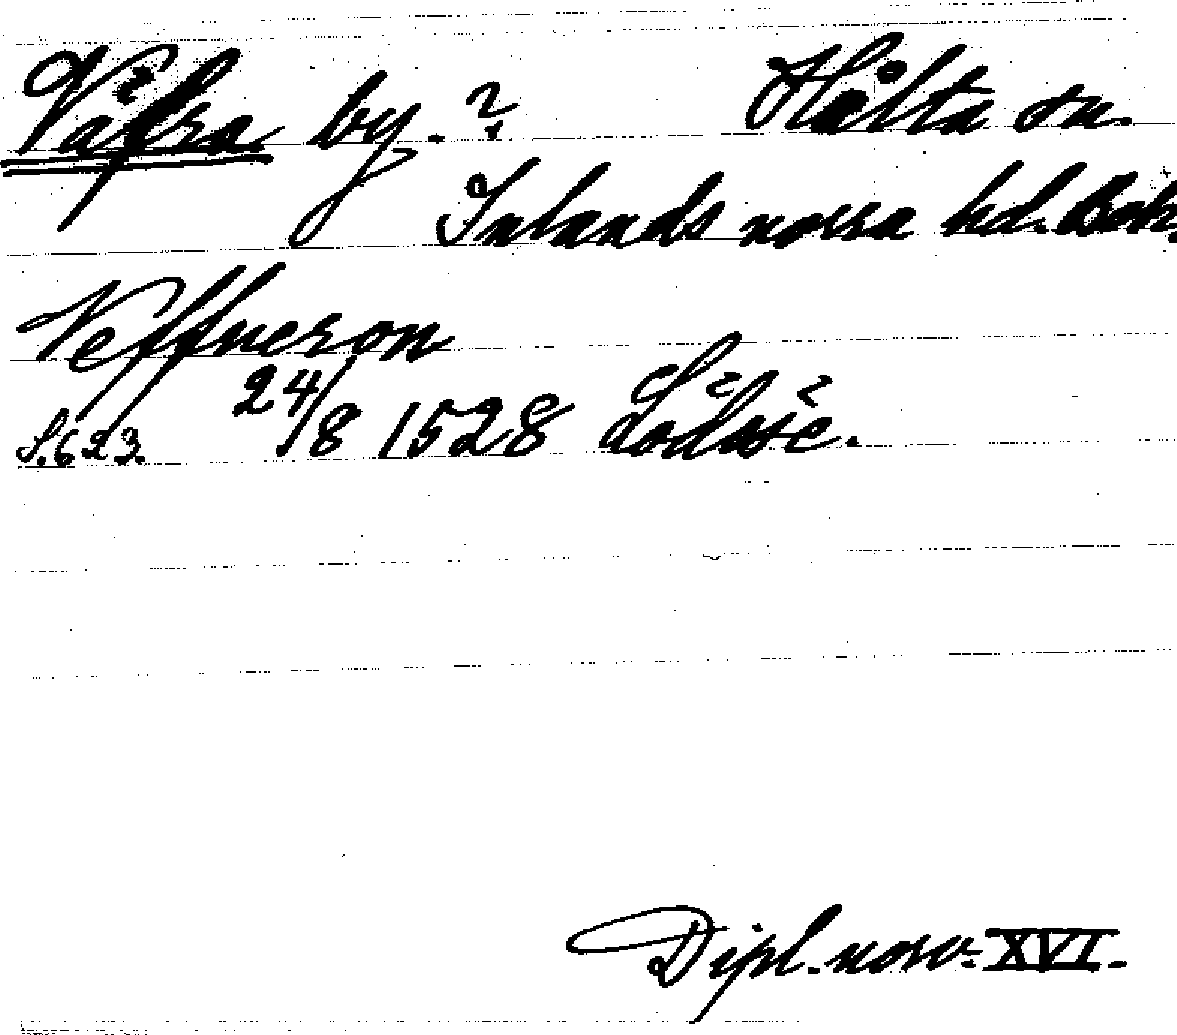 Väfra by. ? Hålta sn.
Inlands norra hd. Boh.
Veffneron
S. 623. 24/8 1528 Lödöse.
Dipl. norv. XVI.